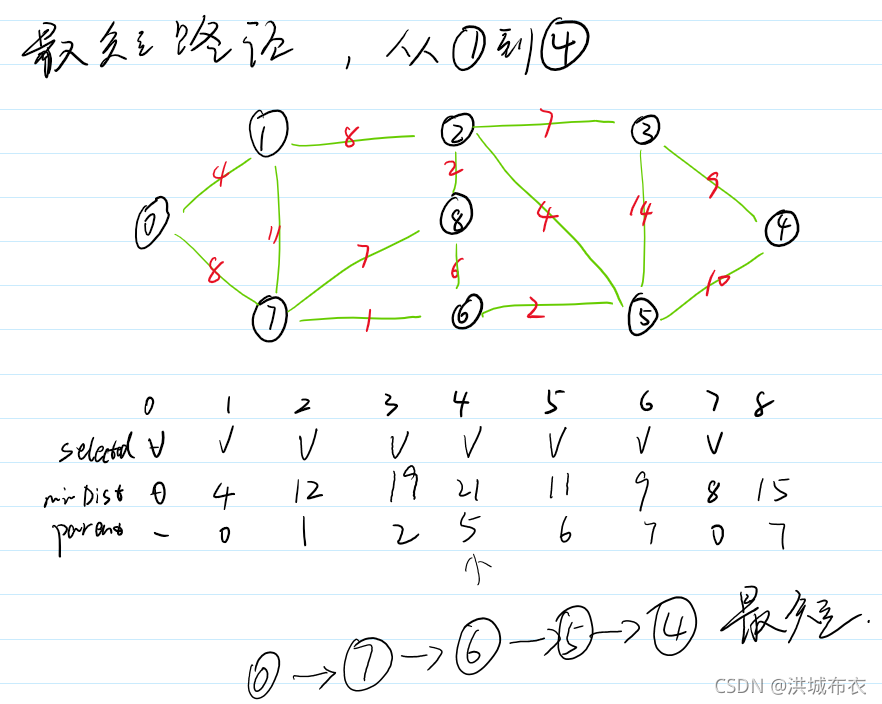 最短路径，从①到④
① 8 ② 7 ③
4 2 9
⓪ 11 ⑧ 4 14 ④
8 7 6 10
⑦ 1 ⑥ 2 ⑤
0 1 2 3 4 5 6 7 8
selected V V V V V V V V
minDist 0 4 12 19 21 11 9 8 15
parent - 0 1 2 5 6 7 0 7
↑
⓪→⑦→⑥→⑤→④ 最短.
CSDN @洪城布衣